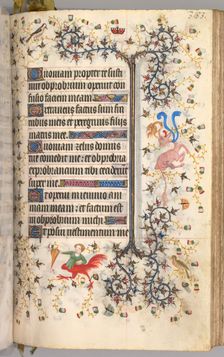 Quoniam propter te susti
nui obprobrium operuit con
fusio faciem meam
Extraneus factus sum fra
tribus meis et peregrinus filiis
matris mee
Quoniam zelus domus
tue comedit me et obprobria
exprobrancium tibi ceciderunt
super me
Et operui in ieiunio ani
mam meam et factum est
in obprobrium michi
Et posui vestimentum me